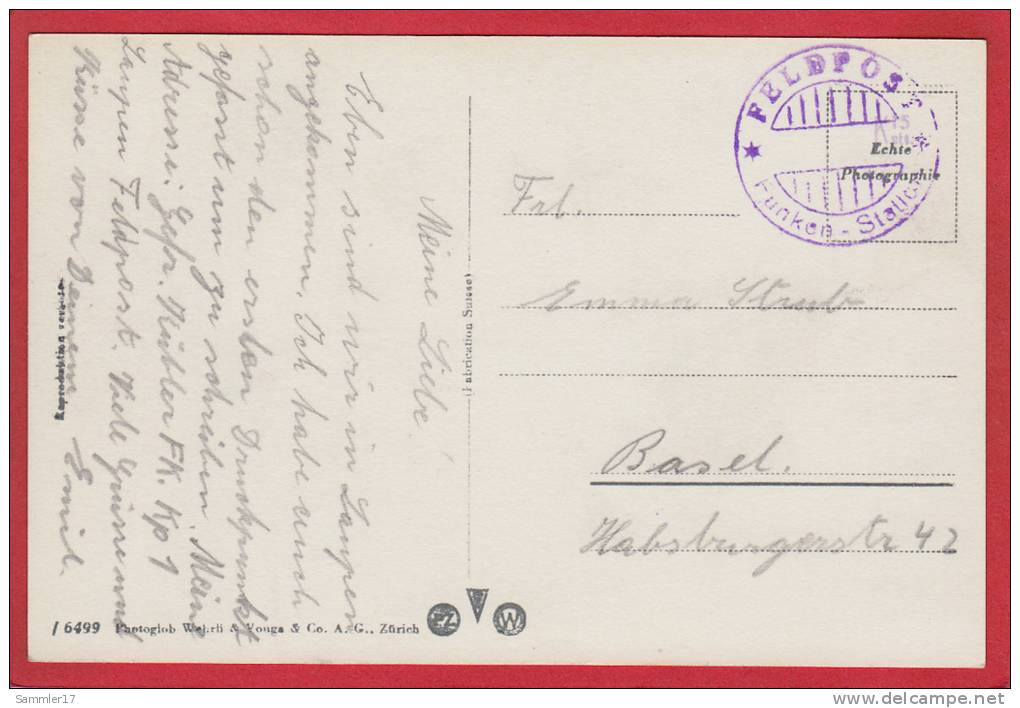 Meine Liebe!
Eben sind wir in Laupen
angekommen. Ich habe auch
schon den ersten Druckpunkt
gefasst um zu schreiben. Meine
Adresse: Gefr. Kübler FK. Kp 1
Laupen Feldpost. Viele Grüsse und
Küsse von Deinem Emil.
FELDPOST
Funken-Station
Echte
Photographie
Frl.
Emma Straub
Basel.
Habsburgerstr 42
(Fabrication Suisse)
/ 6499 Photoglob Wehrli & Vouga & Co. A. G., Zürich
PZ
W
Sammler17
www.delcampe.net